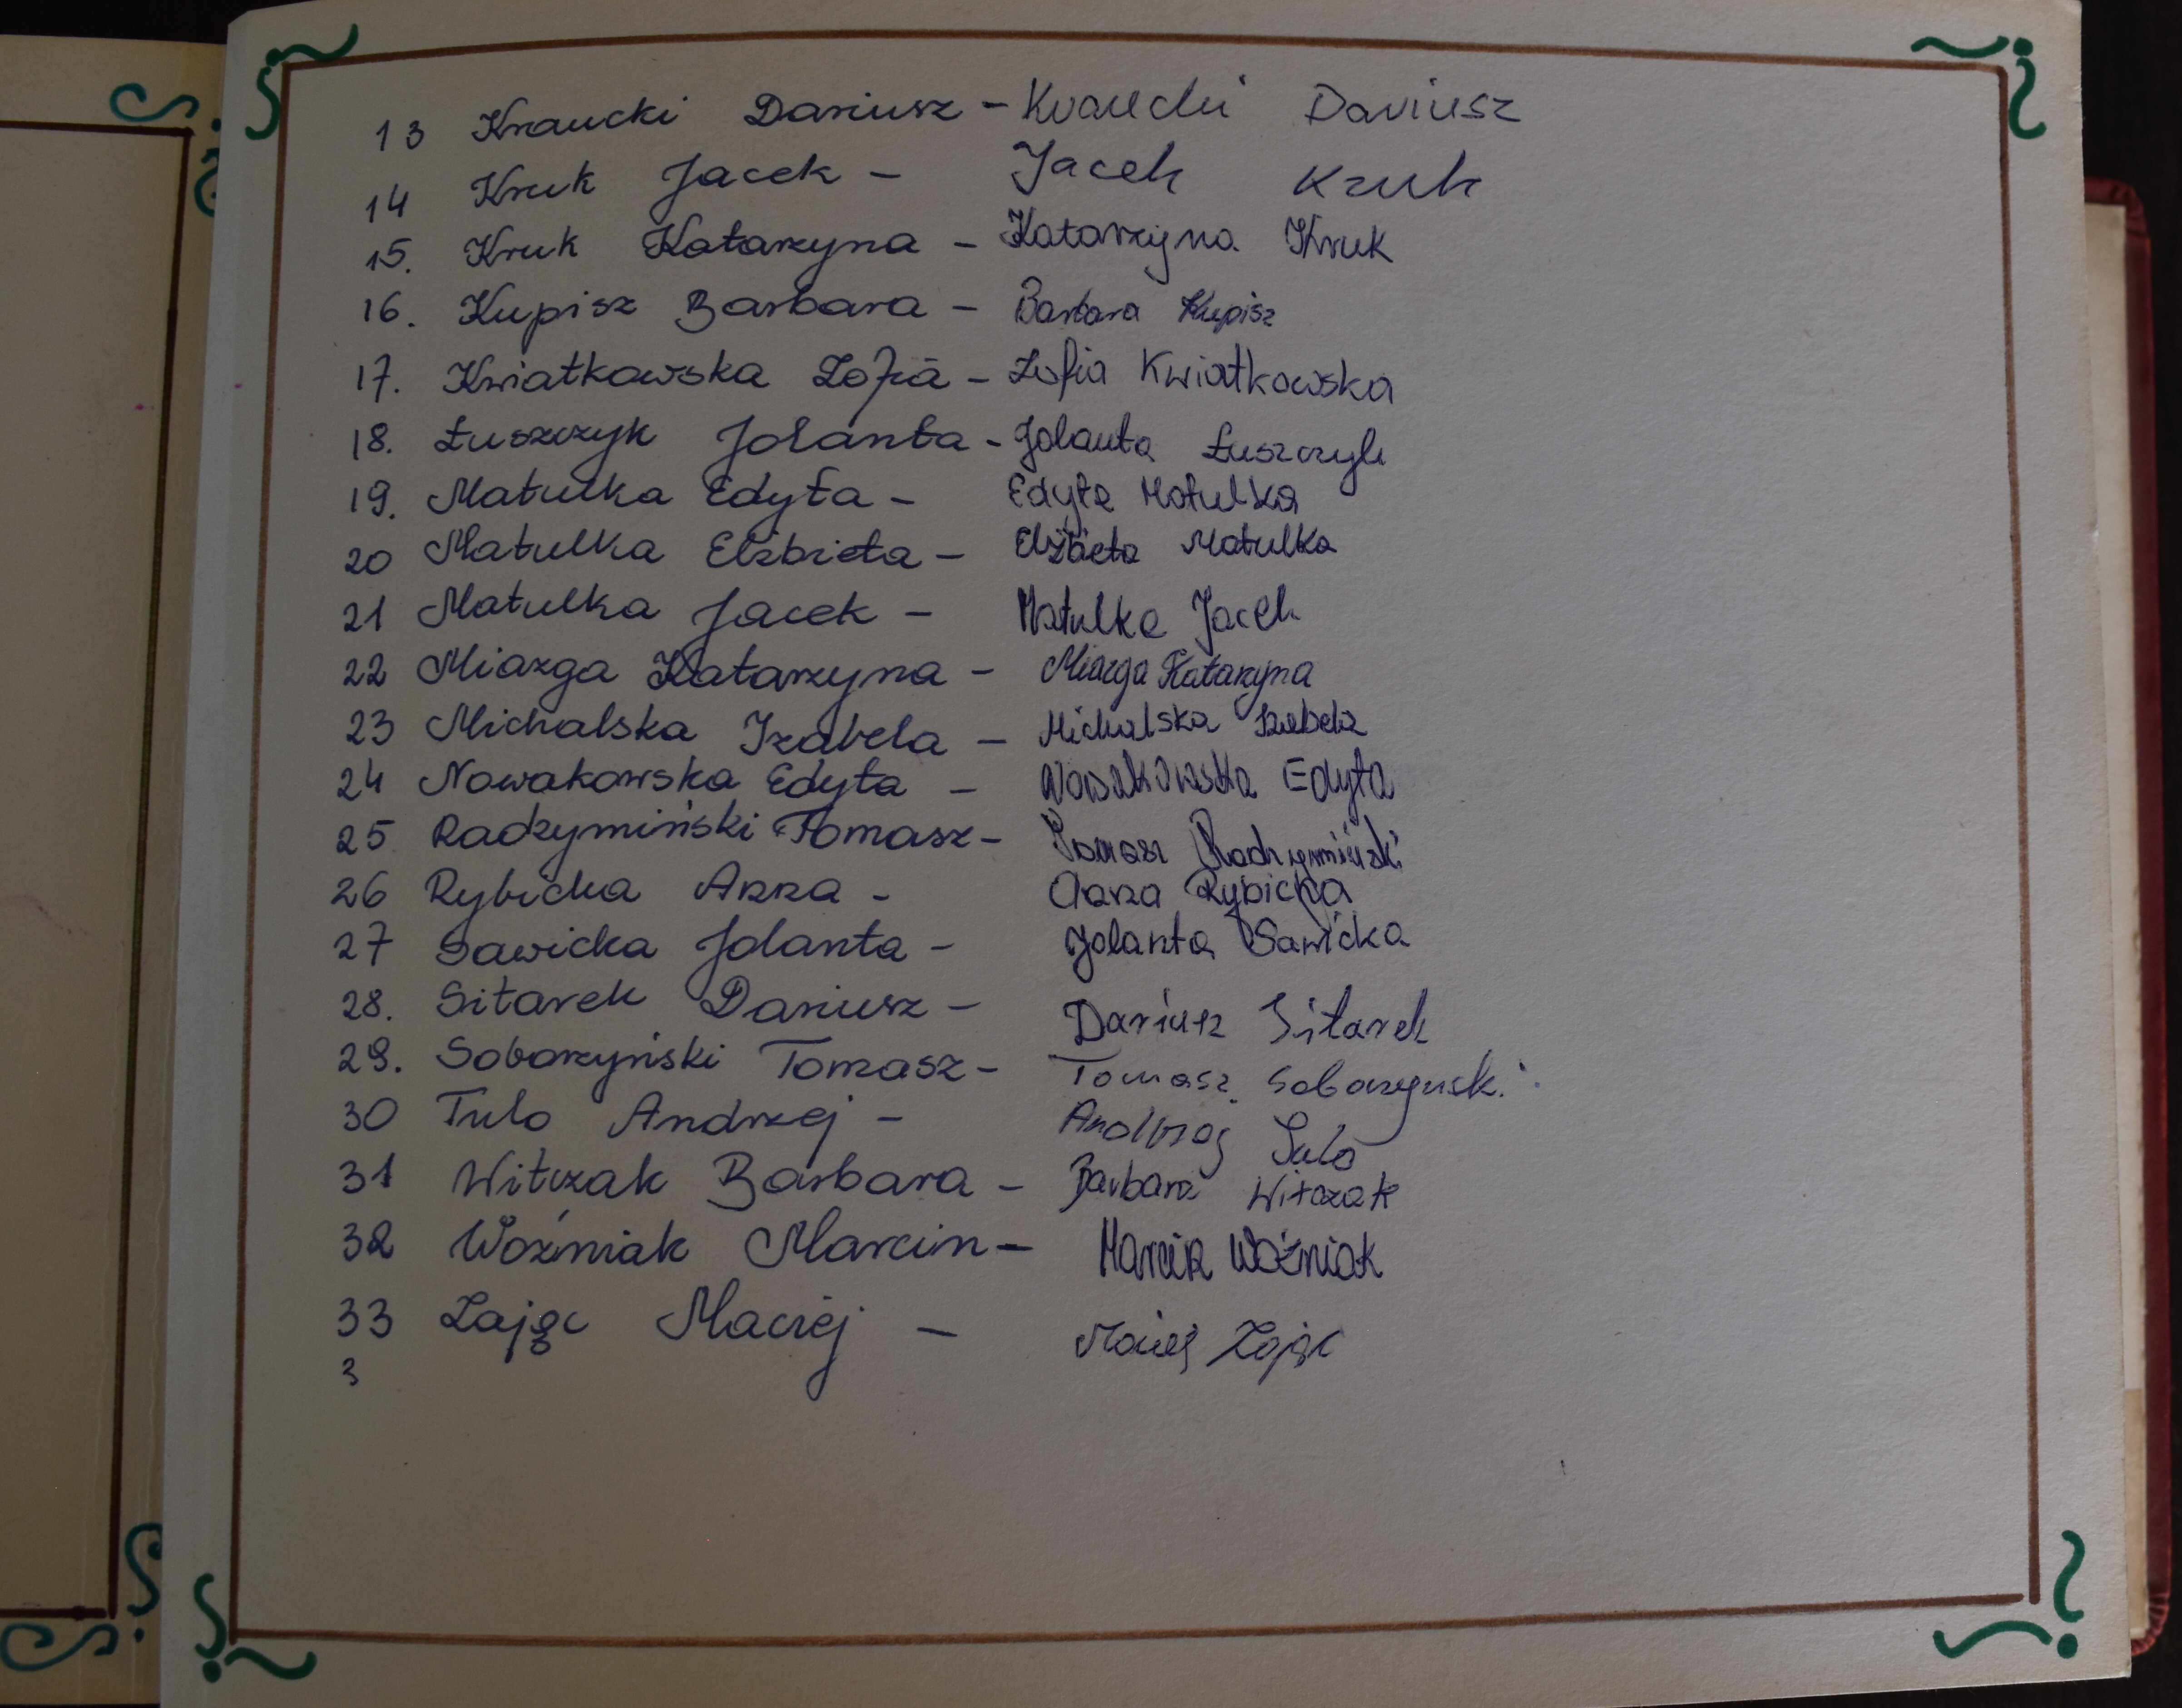 13 Kraucki Dariusz - Kraucki Dariusz
14 Kruk Jacek - Jacek Kruk
15. Kruk Katarzyna - Katarzyna Kruk
16. Kupisz Barbara - Barbara Kupisz
17. Kwiatkowska Zofia - Zofia Kwiatkowska
18. Łuszczyk Jolanta - Jolanta Łuszczyk
19. Matulka Edyta - Edyta Matulka
20 Matulka Elżbieta - Elżbieta Matulka
21 Matulka Jacek - Matulka Jacek
22 Miazga Katarzyna - Miazga Katarzyna
23 Michalska Izabela - Michalska Izabela
24 Nowakowska Edyta - Nowakowska Edyta
25 Radzymiński Tomasz - Tomasz Radzymiński
26 Rybicka Anna - Anna Rybicka
27 Sawicka Jolanta - Jolanta Sawicka
28. Sitarek Dariusz - Dariusz Sitarek
29. Soborzyński Tomasz - Tomasz Soborzyński
30 Tulo Andrzej - Andrzej Tulo
31 Witczak Barbara - Barbara Witczak
32 Woźniak Marcin - Marcin Woźniak
33 Zając Maciej - Maciej Zając
3